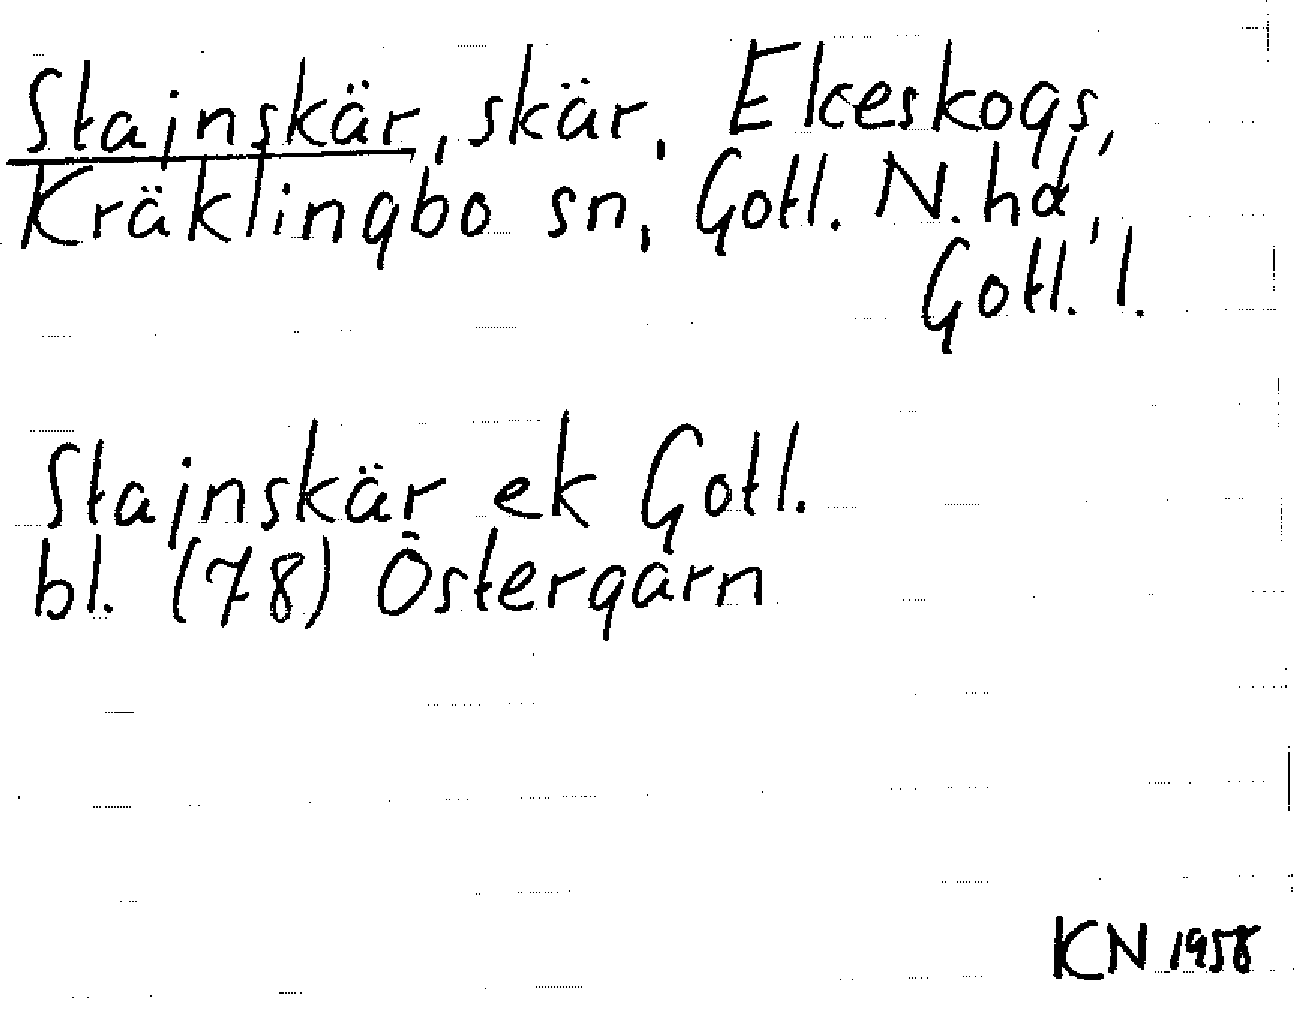 Stajnskär, skär, Ekeskogs,
Kräklingbo sn, Gotl. N. hd,
Gotl. l.
Stajnskär ek Gotl.
bl. (78) Östergarn
KN 1958